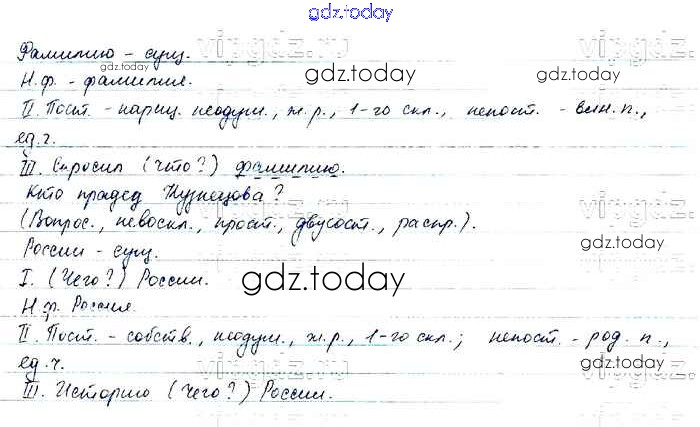 gdz.today
Фамилию - сущ.
vipgdz.ru
gdz.today
Н.ф. - фамилия.
gdz.today
gdz.today
II. Пост. - нариц. неодуш., ж.р., 1-го скл., непост. - вин. п.,
ед.ч.
III. Спросил (что?) фамилию.
Кто прадед Кузнецова?
vipgdz.ru
vipgdz.ru
(Вопрос., невоскл., прост., двусост., распр.).
России - сущ.
gdz.today
gdz.today
I. (Чего?) России.
gdz.today
Н.ф. Россия.
II. Пост. - собств., неодуш., ж.р., 1-го скл.; непост. - род. п.,
ед.ч.
vipgdz.ru
gdz.today
vipgdz.ru
III. Историю (чего?) России.